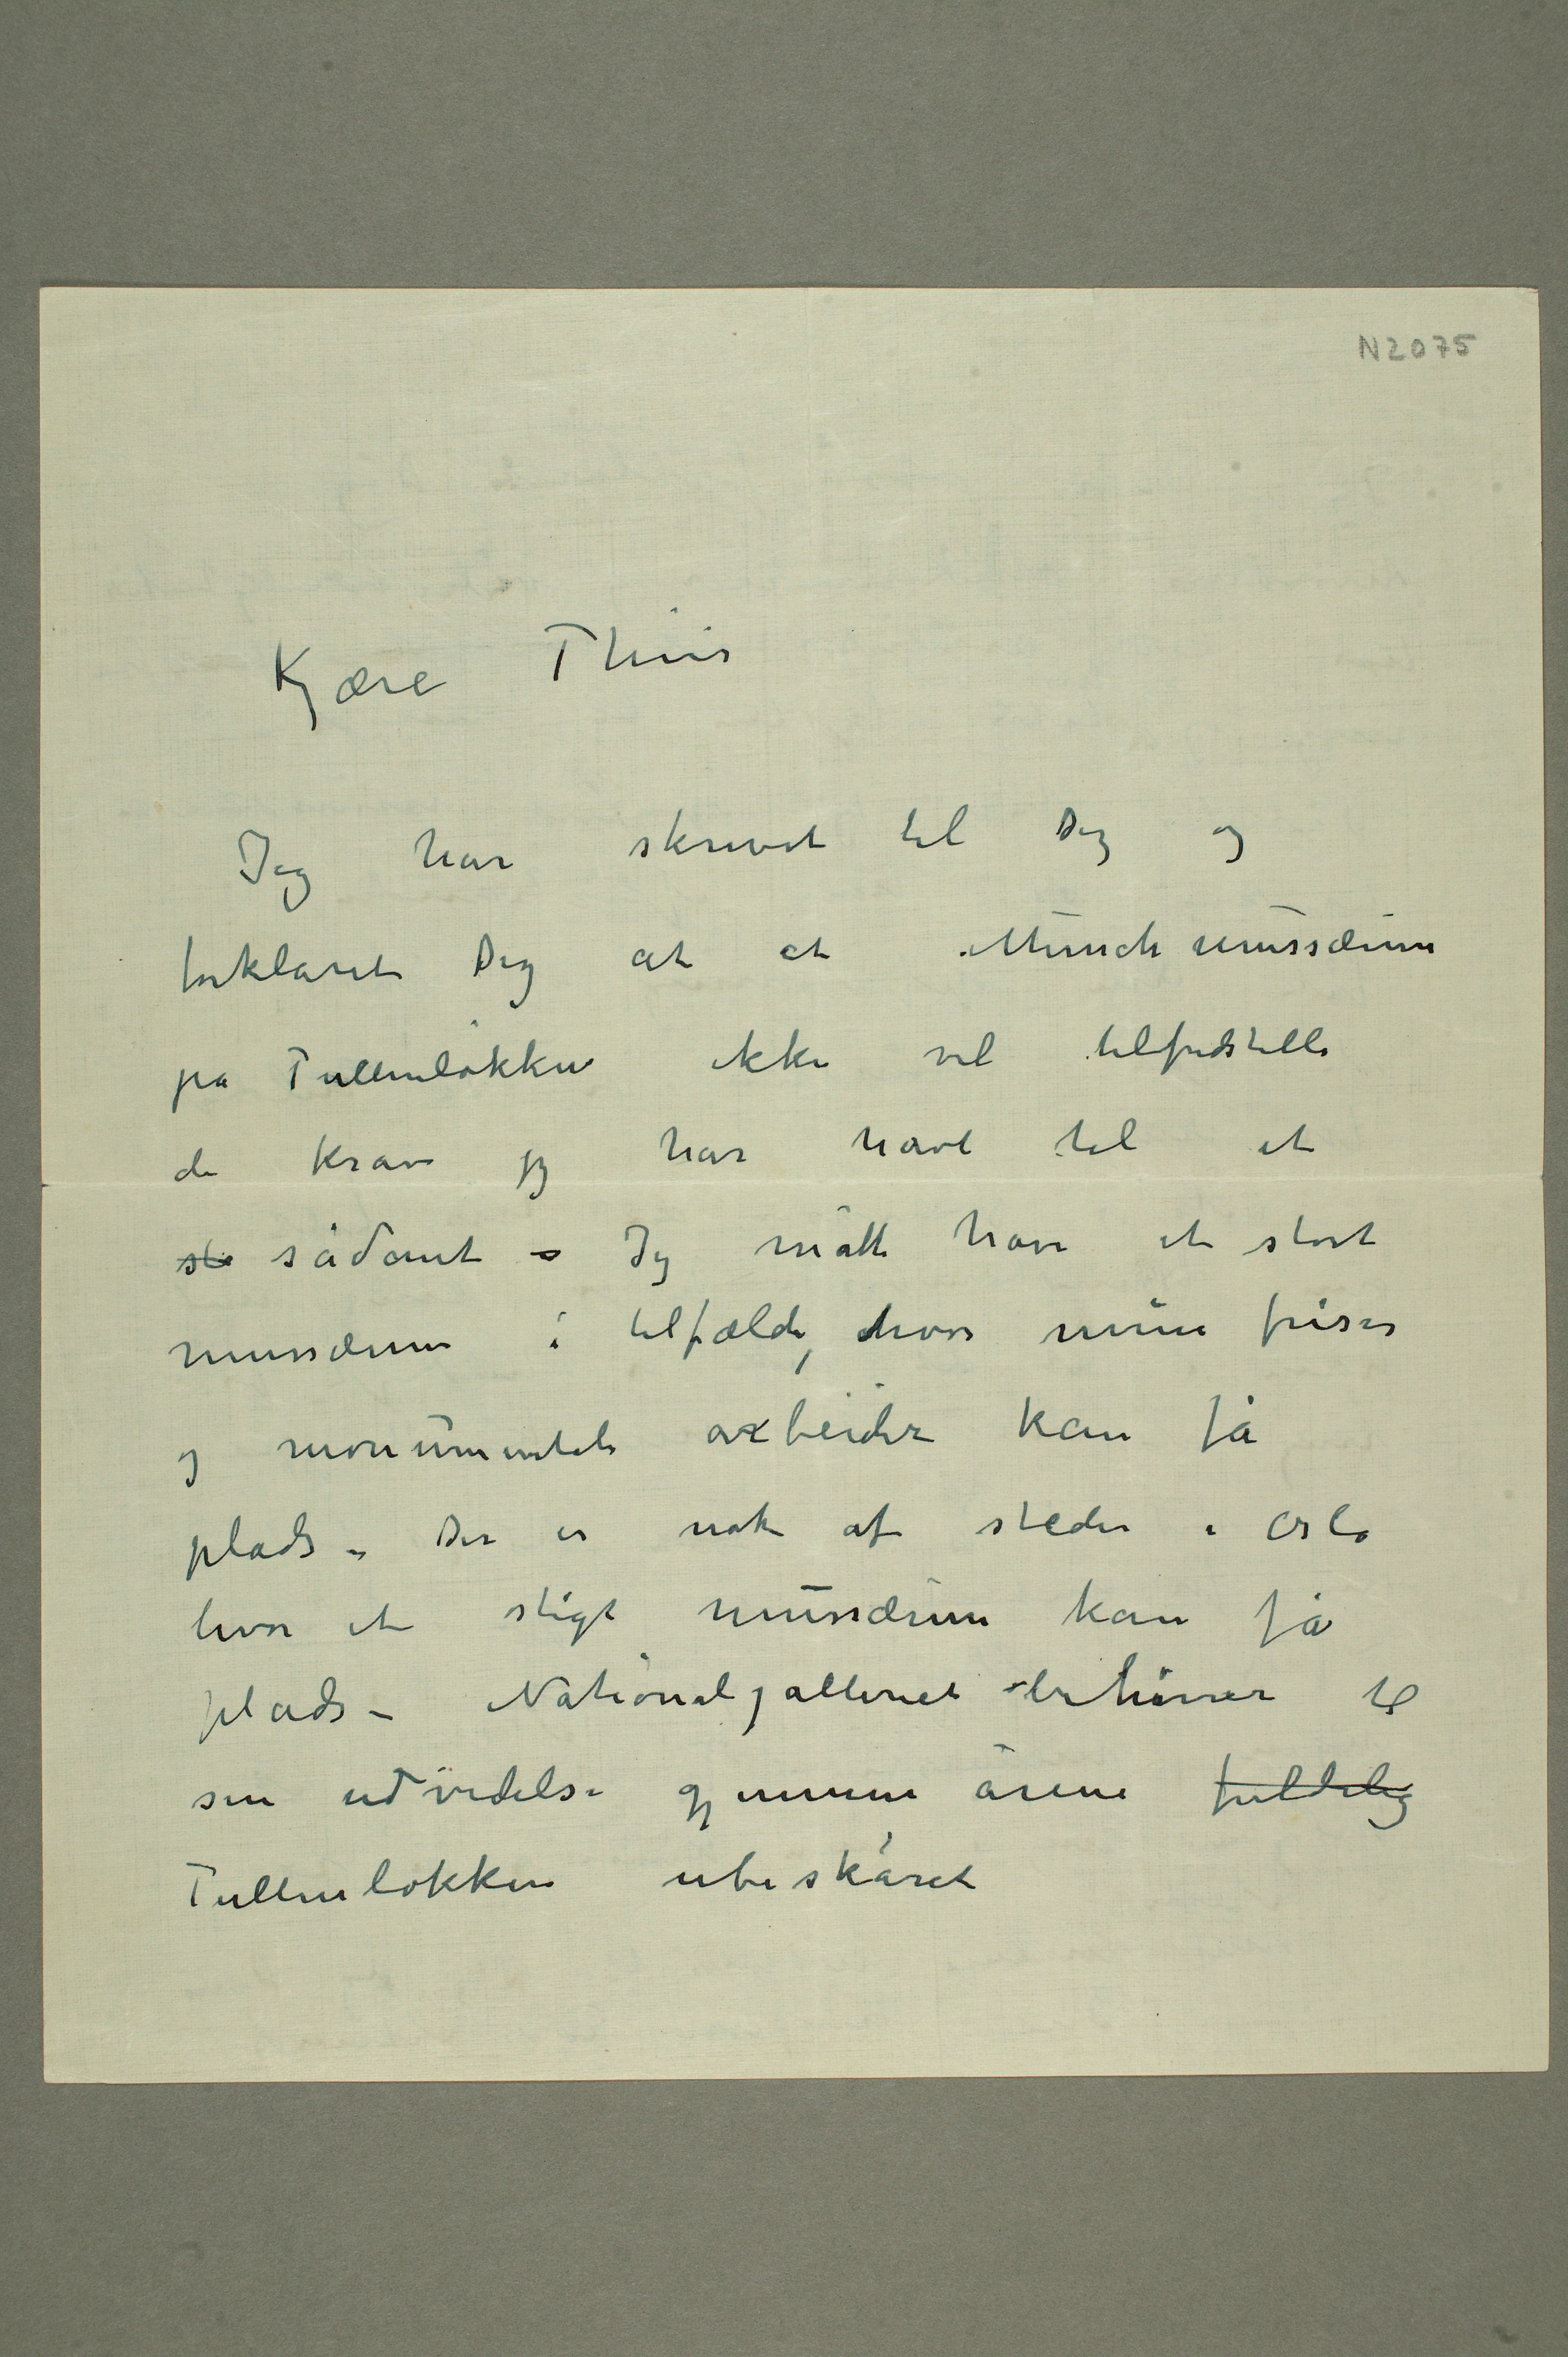 N2075
Kjære Thiis
Jeg har skrevet til Dig og
forklaret Dig at et Munchmussæum
på Tullinløkken ikke vil tilfredstille
de krav jeg har havt til et
sådant – Jeg måtte have et stort
mussæum i tilfælde, hvor mine friser
og monumentale arbeider kan få
plads – Der er nok af steder i Oslo
hvor et sligt mussæum kan få
plads – Nationalgalleriet behøver til
sin udvidelse gjennem årene fuldelig
Tullinløkken ubeskåret